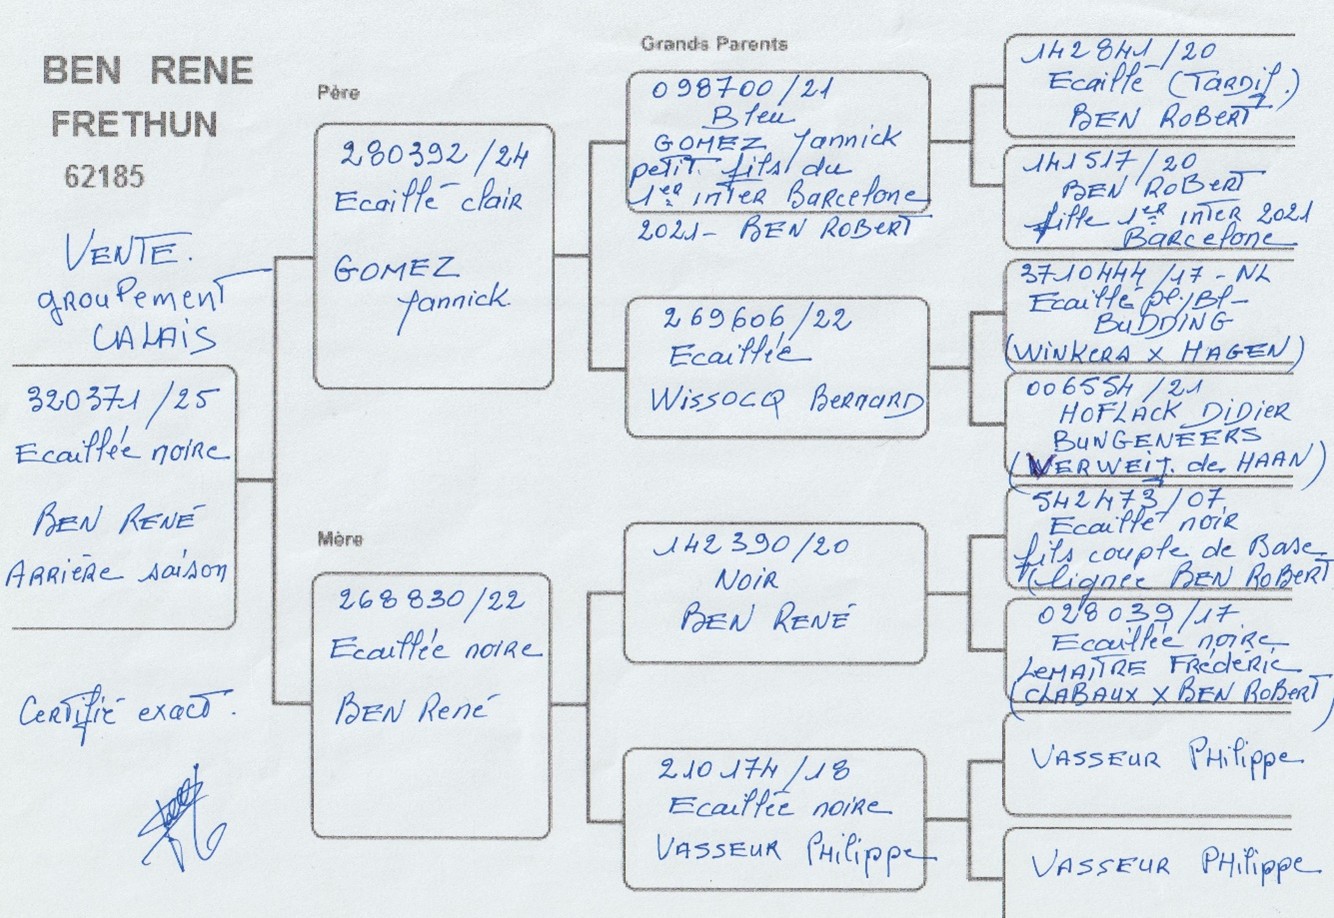 BEN RENE
FRETHUN
62185
VENTE.
groupement
CALAIS
320371/25
Ecaillée noire
BEN RENÉ
Arrière saison
Certifié exact.
Père
280392/24
Ecaillé clair
GOMEZ
Yannick
Mère
268830/22
Ecaillée noire
BEN René
Grands Parents
098700/21
Bleu
GOMEZ Yannick
petit fils du
1er inter Barcelone
2021- BEN ROBERT
269606/22
Ecaillée
WISSOCQ BERNARD
142390/20
NOIR
BEN RENÉ
210174/18
Ecaillée noire
VASSEUR PHilippe
142841/20
Ecaillé (TARDif.)
BEN ROBERT
141517/20
BEN ROBERT
fille 1er inter 2021
Barcelone
3710444/17 - NL
Ecaillé pl./Bl-
BUDDING
(WINKERS x HAGEN)
006554/21
HOFLACK DIDIER
BUNGENEERS
(VERWEIJ. de HAAN)
542473/07
Ecaillé noir
fils couple de Base
(lignée BEN ROBERT
028039/17
Ecaillée noire
LEMAITRE Frédéric
(CLABAUX x BEN ROBERT)
VASSEUR PHilippe
VASSEUR PHilippe